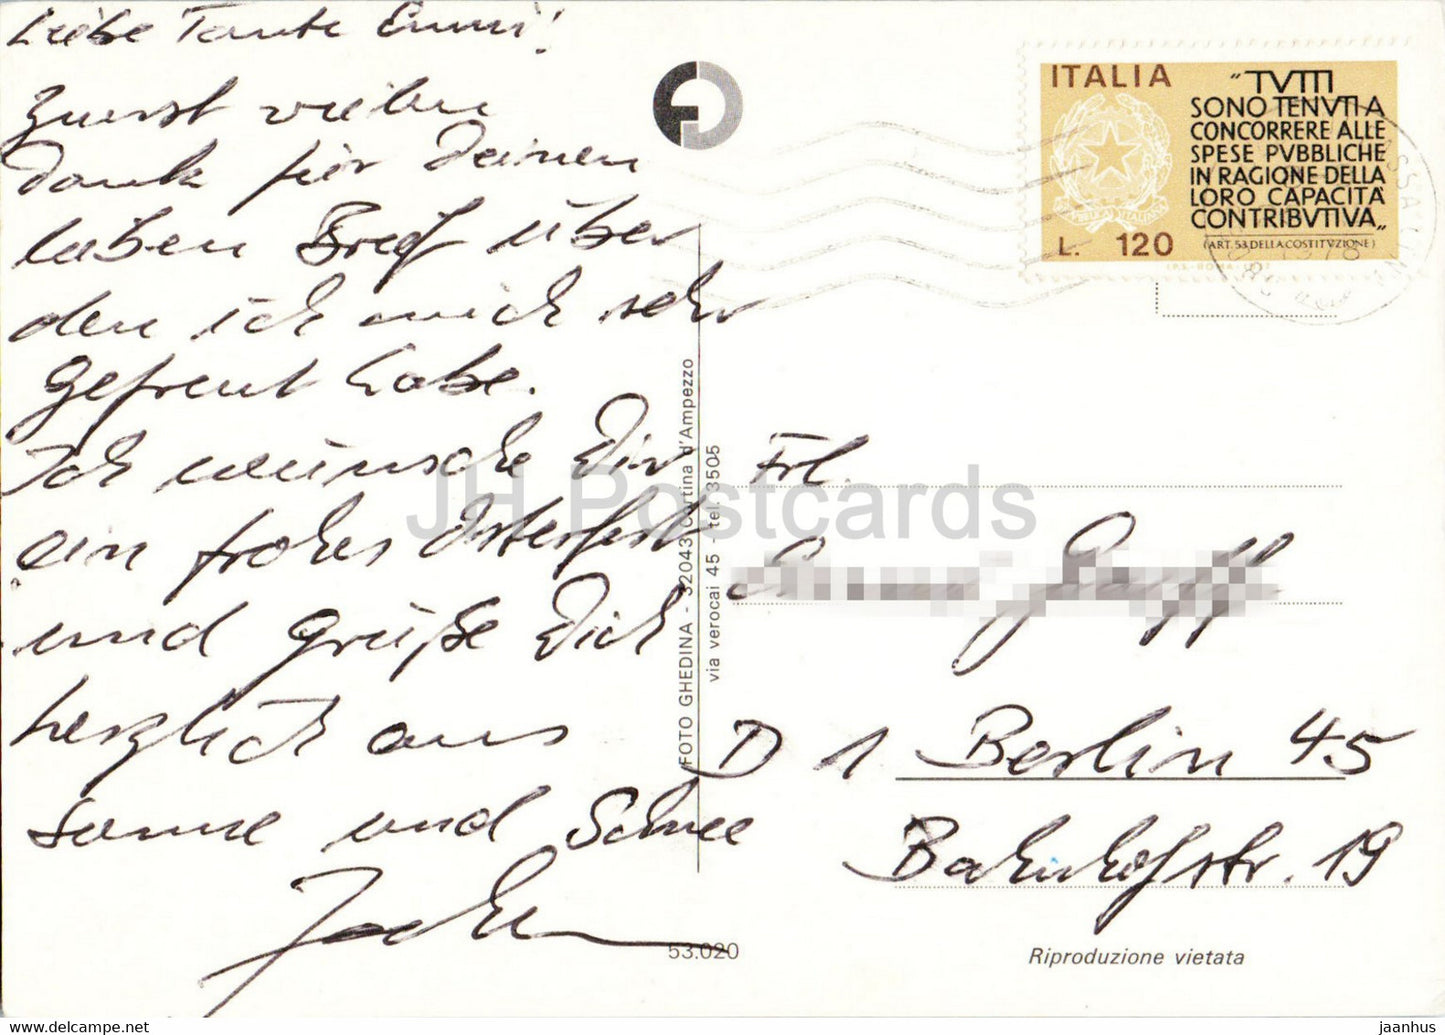 Liebe Tante Emmi!
Zuerst vielen
Dank für Deinen
lieben Brief über
den ich mich sehr
gefreut habe.
Ich wünsche Dir
ein frohes Osterfest
und grüße Dich
herzlich aus
Sonne und Schnee
Jochen
FOTO GHEDINA - 32043 Cortina d'Ampezzo
via verocai 45 - tel. 3505
53.020
ITALIA
"TVTTI
SONO TENVTI A
CONCORRERE ALLE
SPESE PVBBLICHE
IN RAGIONE DELLA
LORO CAPACITÀ
CONTRIBVTIVA"
(ART. 53 DELLA COSTITVZIONE)
L. 120
Frl.
D 1 Berlin 45
Bahnhofstr. 19
Riproduzione vietata
JH Postcards
jaanhus
https://www.ebay.com/usr/jaanhus